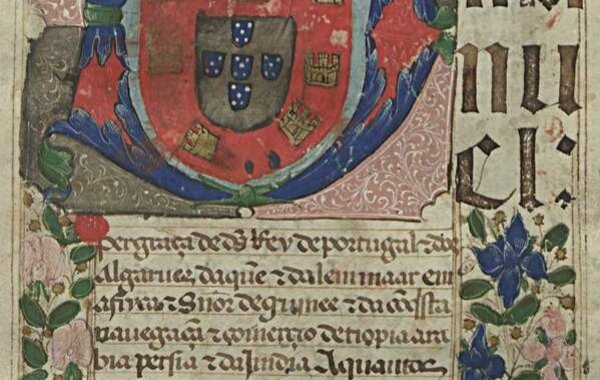 nu
el:
per graça de ds Rey de portugal ⁊ dos
algarues daquē ⁊ dalem maar em
africa ⁊ Snor de guinee ⁊ da cōqsta
nauegaçã ⁊ comerçio detiopia ara
bia persia ⁊ da India A quantos